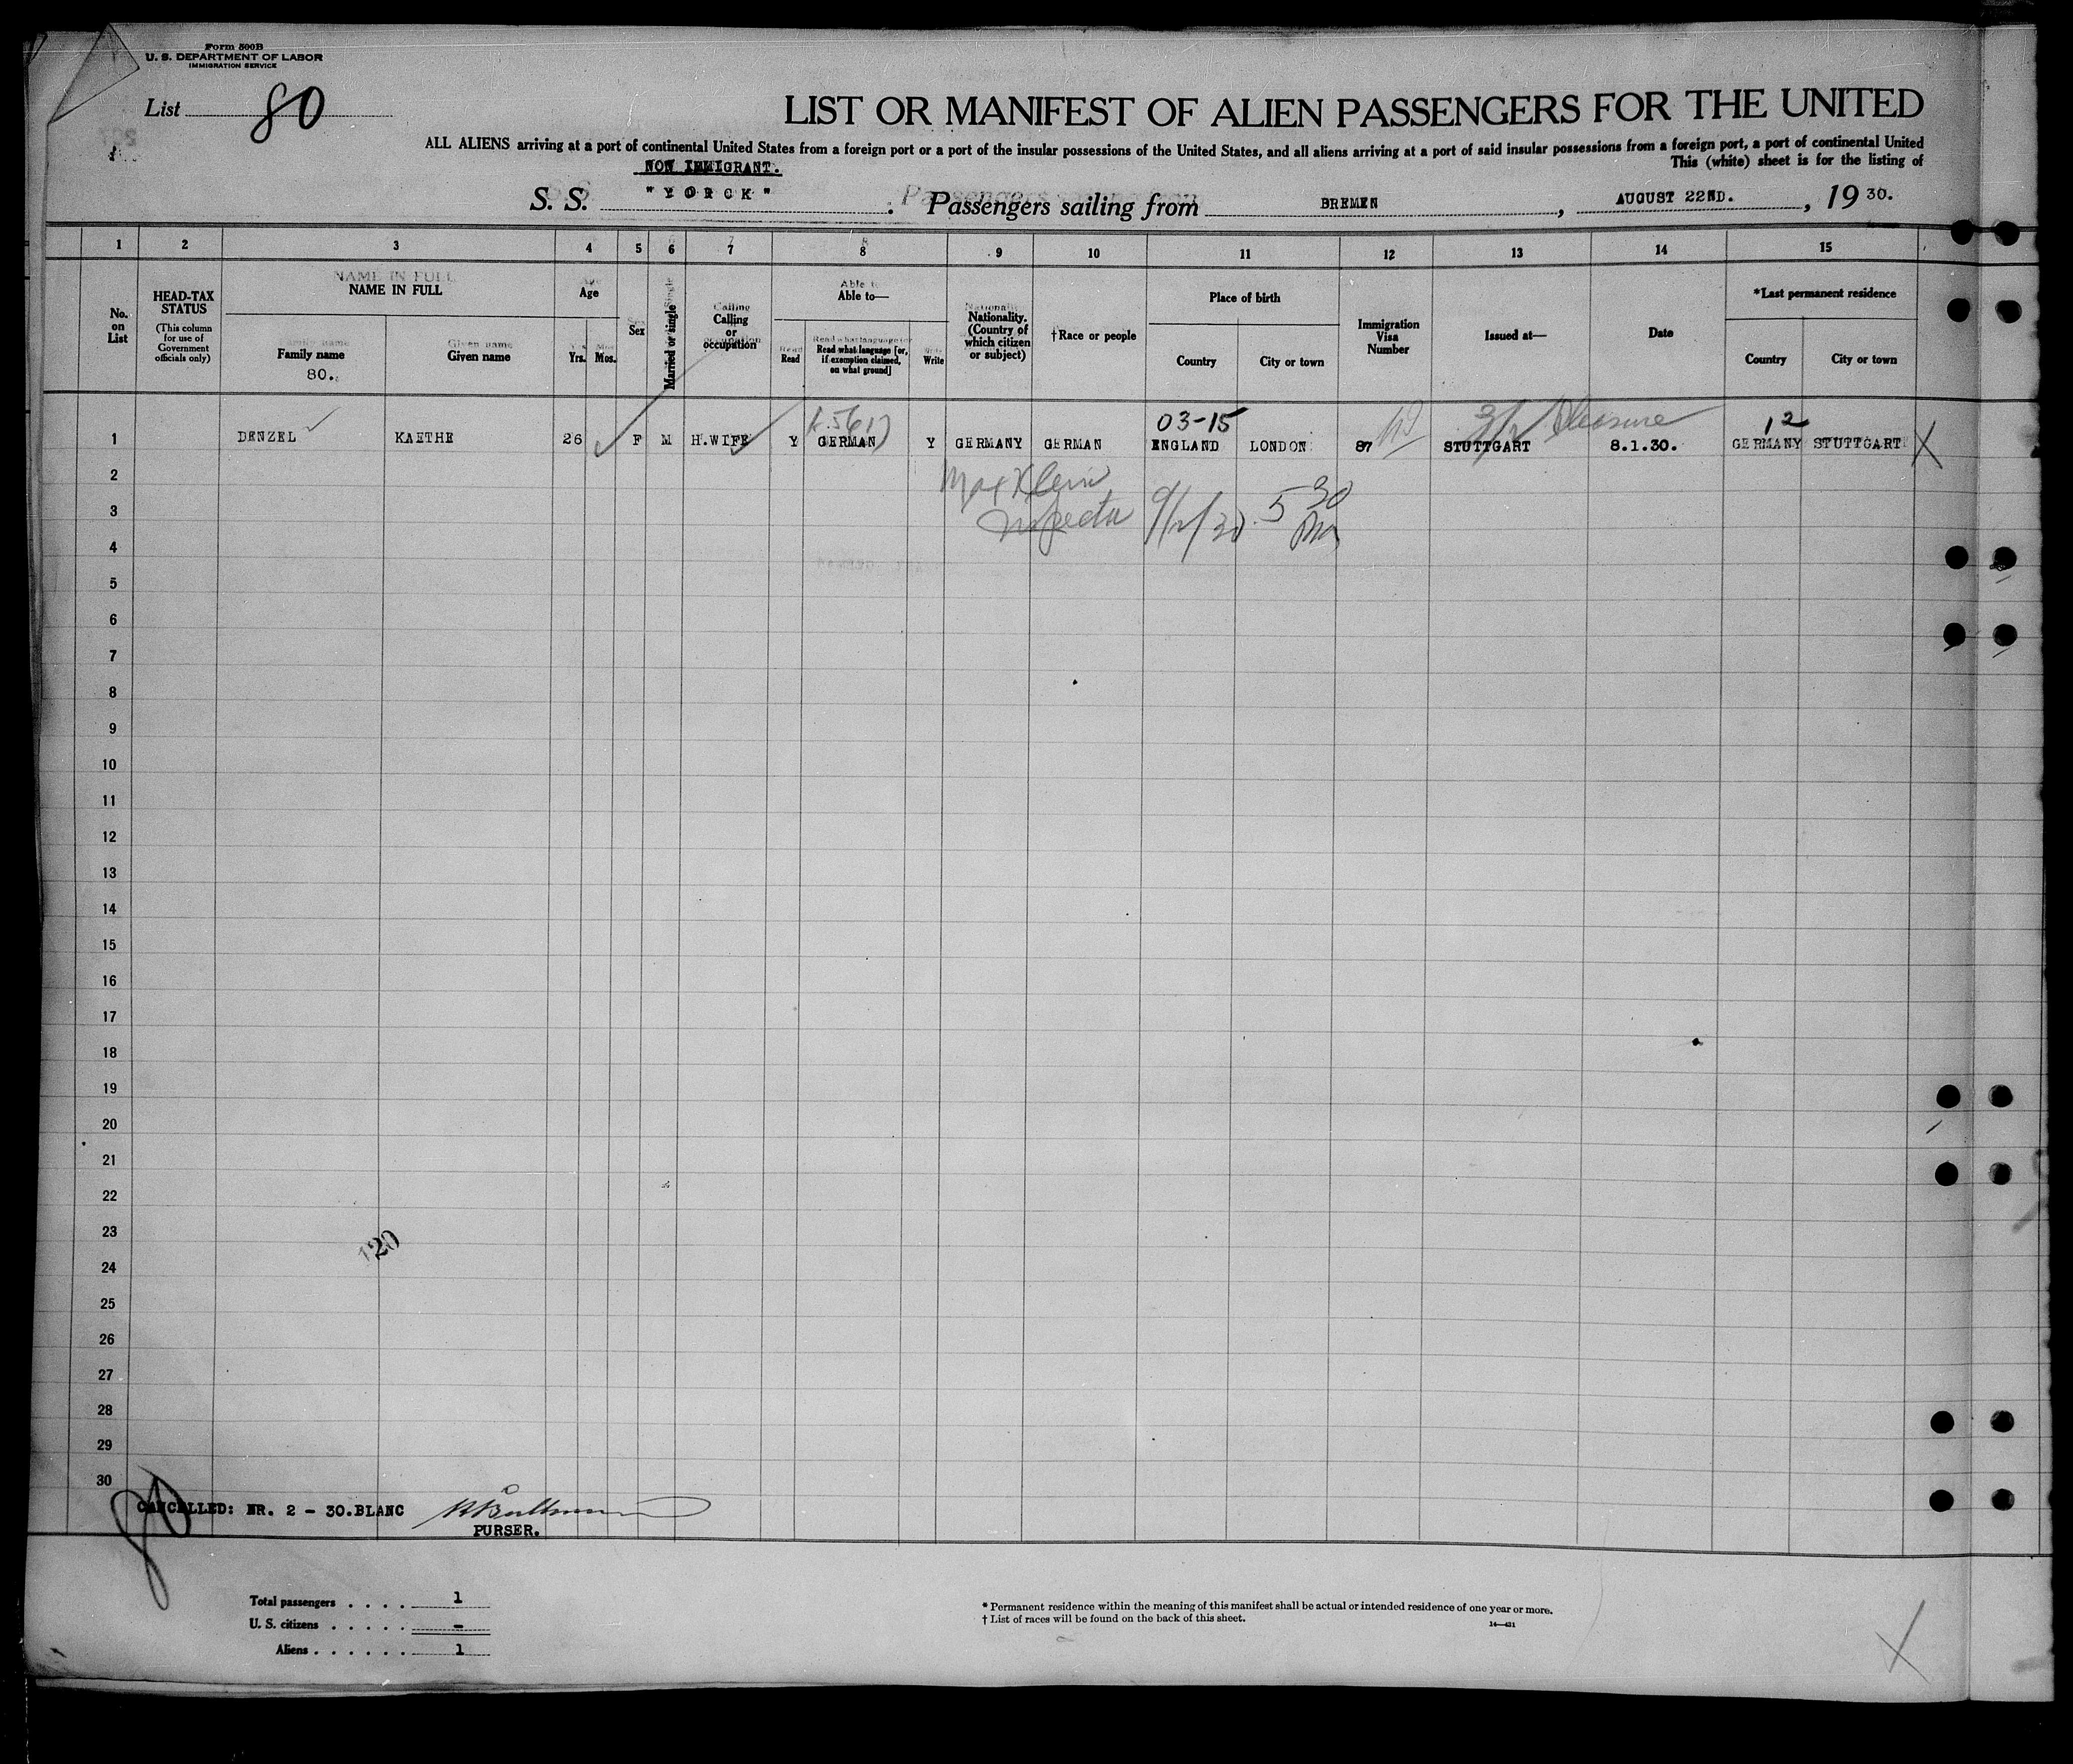 Form 500B
U. S. DEPARTMENT OF LABOR
IMMIGRATION SERVICE
List 80
LIST OR MANIFEST OF ALIEN PASSENGERS FOR THE UNITED
ALL ALIENS arriving at a port of continental United States from a foreign port or a port of the insular possessions of the United States, and all aliens arriving at a port of said insular possessions from a foreign port, a port of continental United
This (white) sheet is for the listing of
NON IMMIGRANT.
S. S. "YORCK" . Passengers sailing from BREMEN , AUGUST 22ND. , 19 30.
1 2 3 4 5 6 7 8 9 10 11 12 13 14 15
No. on List
HEAD-TAX STATUS
(This column for use of Government officials only)
NAME IN FULL
Family name
80.
Given name
Age
Yrs. Mos.
Sex
Married or single
Calling or occupation
Able to—
Read
Read what language [or, if exemption claimed, on what ground]
Write
Nationality. (Country of which citizen or subject)
†Race or people
Place of birth
Country
City or town
Immigration Visa Number
Issued at—
Date
*Last permanent residence
Country
City or town
03-15
Pleasure
12
1 DENZEL KAETHE 26 F M H.WIFE Y GERMAN Y GERMANY GERMAN ENGLAND LONDON 87 STUTTGART 8.1.30. GERMANY STUTTGART X
2
Max Klein
3
Inspector 5 30 PM
4
5
6
7
8
9
10
11
12
13
14
15
16
17
18
19
20
21
22
23
120
24
25
26
27
28
29
30
80
CANCELLED: NR. 2 - 30.BLANC
PURSER.
Total passengers . . . . 1
U. S. citizens . . . . . -
Aliens . . . . . . 1
* Permanent residence within the meaning of this manifest shall be actual or intended residence of one year or more.
† List of races will be found on the back of this sheet.
14—431
X